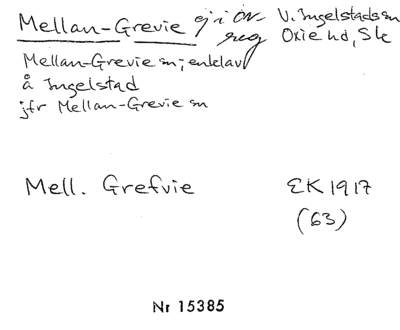 Mellan-Grevie ej i ÖN- V. Ingelstads sn
reg Oxie hd, Sk
Mellan-Grevie sn; enklav
å Ingelstad
jfr Mellan-Grevie sn
Mell. Grefvie EK 1917
(63)
Nr 15385